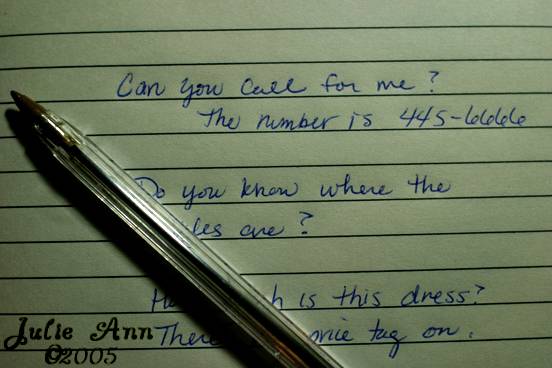 Can you call for me?
The number is 445-6666
Do you know where the
are?
is this dress?
tag on.
Julie Ann
©2005